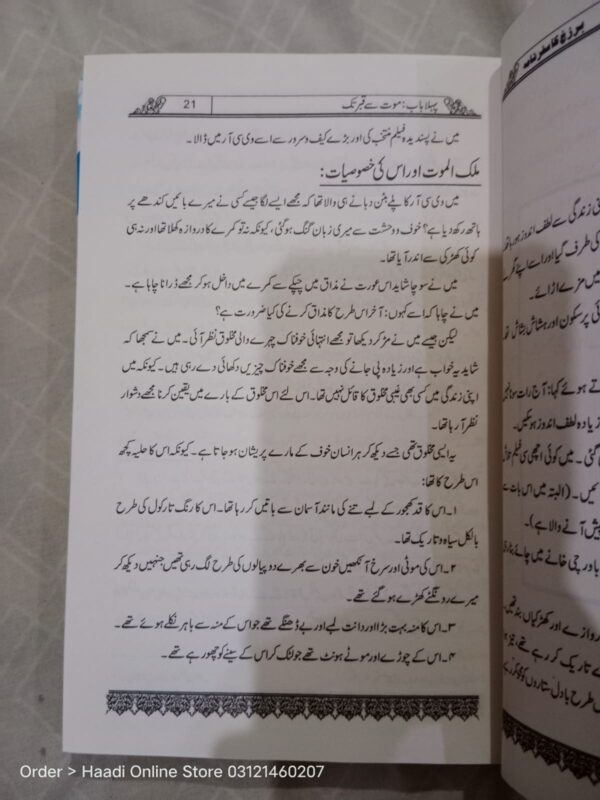 21
پہلا باب: موت سے قبر تک
میں نے پسندیدہ فیلم منتخب کی اور بڑے کیف و سرور سے اسے وی سی آر میں ڈالا۔
ملک الموت اور اس کی خصوصیات:
میں وی سی آر کا پلے بٹن دبانے ہی والا تھا کہ مجھے ایسے لگا جیسے کسی نے میرے بائیں کندھے پر
ہاتھ رکھ دیا ہے؟ خوف و وحشت سے میری زبان گنگ ہو گئی، کیونکہ نہ تو کمرے کا دروازہ کھلا تھا اور نہ ہی
کوئی کھڑکی سے اندر آیا تھا۔
میں نے سوچا شاید اس عورت نے مذاق میں چپکے سے کمرے میں داخل ہو کر مجھے ڈرانا چاہا ہے۔
میں نے چاہا کہ اسے کہوں: آخر اس طرح کا مذاق کرنے کی کیا ضرورت ہے؟
لیکن جیسے میں نے مڑ کر دیکھا تو مجھے انتہائی خوفناک چہرے والی مخلوق نظر آئی۔ میں نے سمجھا کہ
شاید یہ خواب ہے اور زیادہ پی جانے کی وجہ سے مجھے خوفناک چیزیں دکھائی دے رہی ہیں۔ کیونکہ میں
اپنی زندگی میں کسی بھی غیبی مخلوق کا قائل نہیں تھا۔ اس لئے اس مخلوق کے بارے میں یقین کرنا مجھے دشوار
نظر آ رہا تھا۔
یہ ایسی مخلوق تھی جسے دیکھ کر ہر انسان خوف کے مارے پریشان ہو جاتا ہے۔ کیونکہ اس کا حلیہ کچھ
اس طرح کا تھا:
۱۔ اس کا قد کھجور کے لمبے تنے کی مانند آسمان سے باتیں کر رہا تھا۔ اس کا رنگ تارکول کی طرح
بالکل سیاہ و تاریک تھا۔
۲۔ اس کی موٹی اور سرخ آنکھیں خون سے بھرے دو پیالوں کی طرح لگ رہی تھیں جنہیں دیکھ کر
میرے رونگٹے کھڑے ہو گئے تھے۔
۳۔ اس کا منہ بہت بڑا اور دانت لمبے اور بے ڈھنگے تھے جو اس کے منہ سے باہر نکلے ہوئے تھے۔
۴۔ اس کے چوڑے اور موٹے ہونٹ تھے جو لٹک کر اس کے سینے کو چھو رہے تھے۔
برزخ کا سفر نامہ
زندگی سے لطف اندوز ہو رہا تھا
کی طرف گیا اور اسے اپنے
میں مزے اڑائے۔
پر سکون اور ہشاش بشاش
ہوئے کہا: آج رات سونا نہیں
زیادہ لطف اندوز ہو سکیں۔
گئی۔ میں کوئی اچھی سی فیلم
ئیں۔ (البتہ میں اس بات سے
پیش آنے والا ہے)۔
باور چی خانے میں چائے بنا رہی
دروازے اور کھڑکیاں بند تھیں
تاریک کر رہے تھے،
طرح بادل ستاروں کو
Order > Haadi Online Store 03121460207